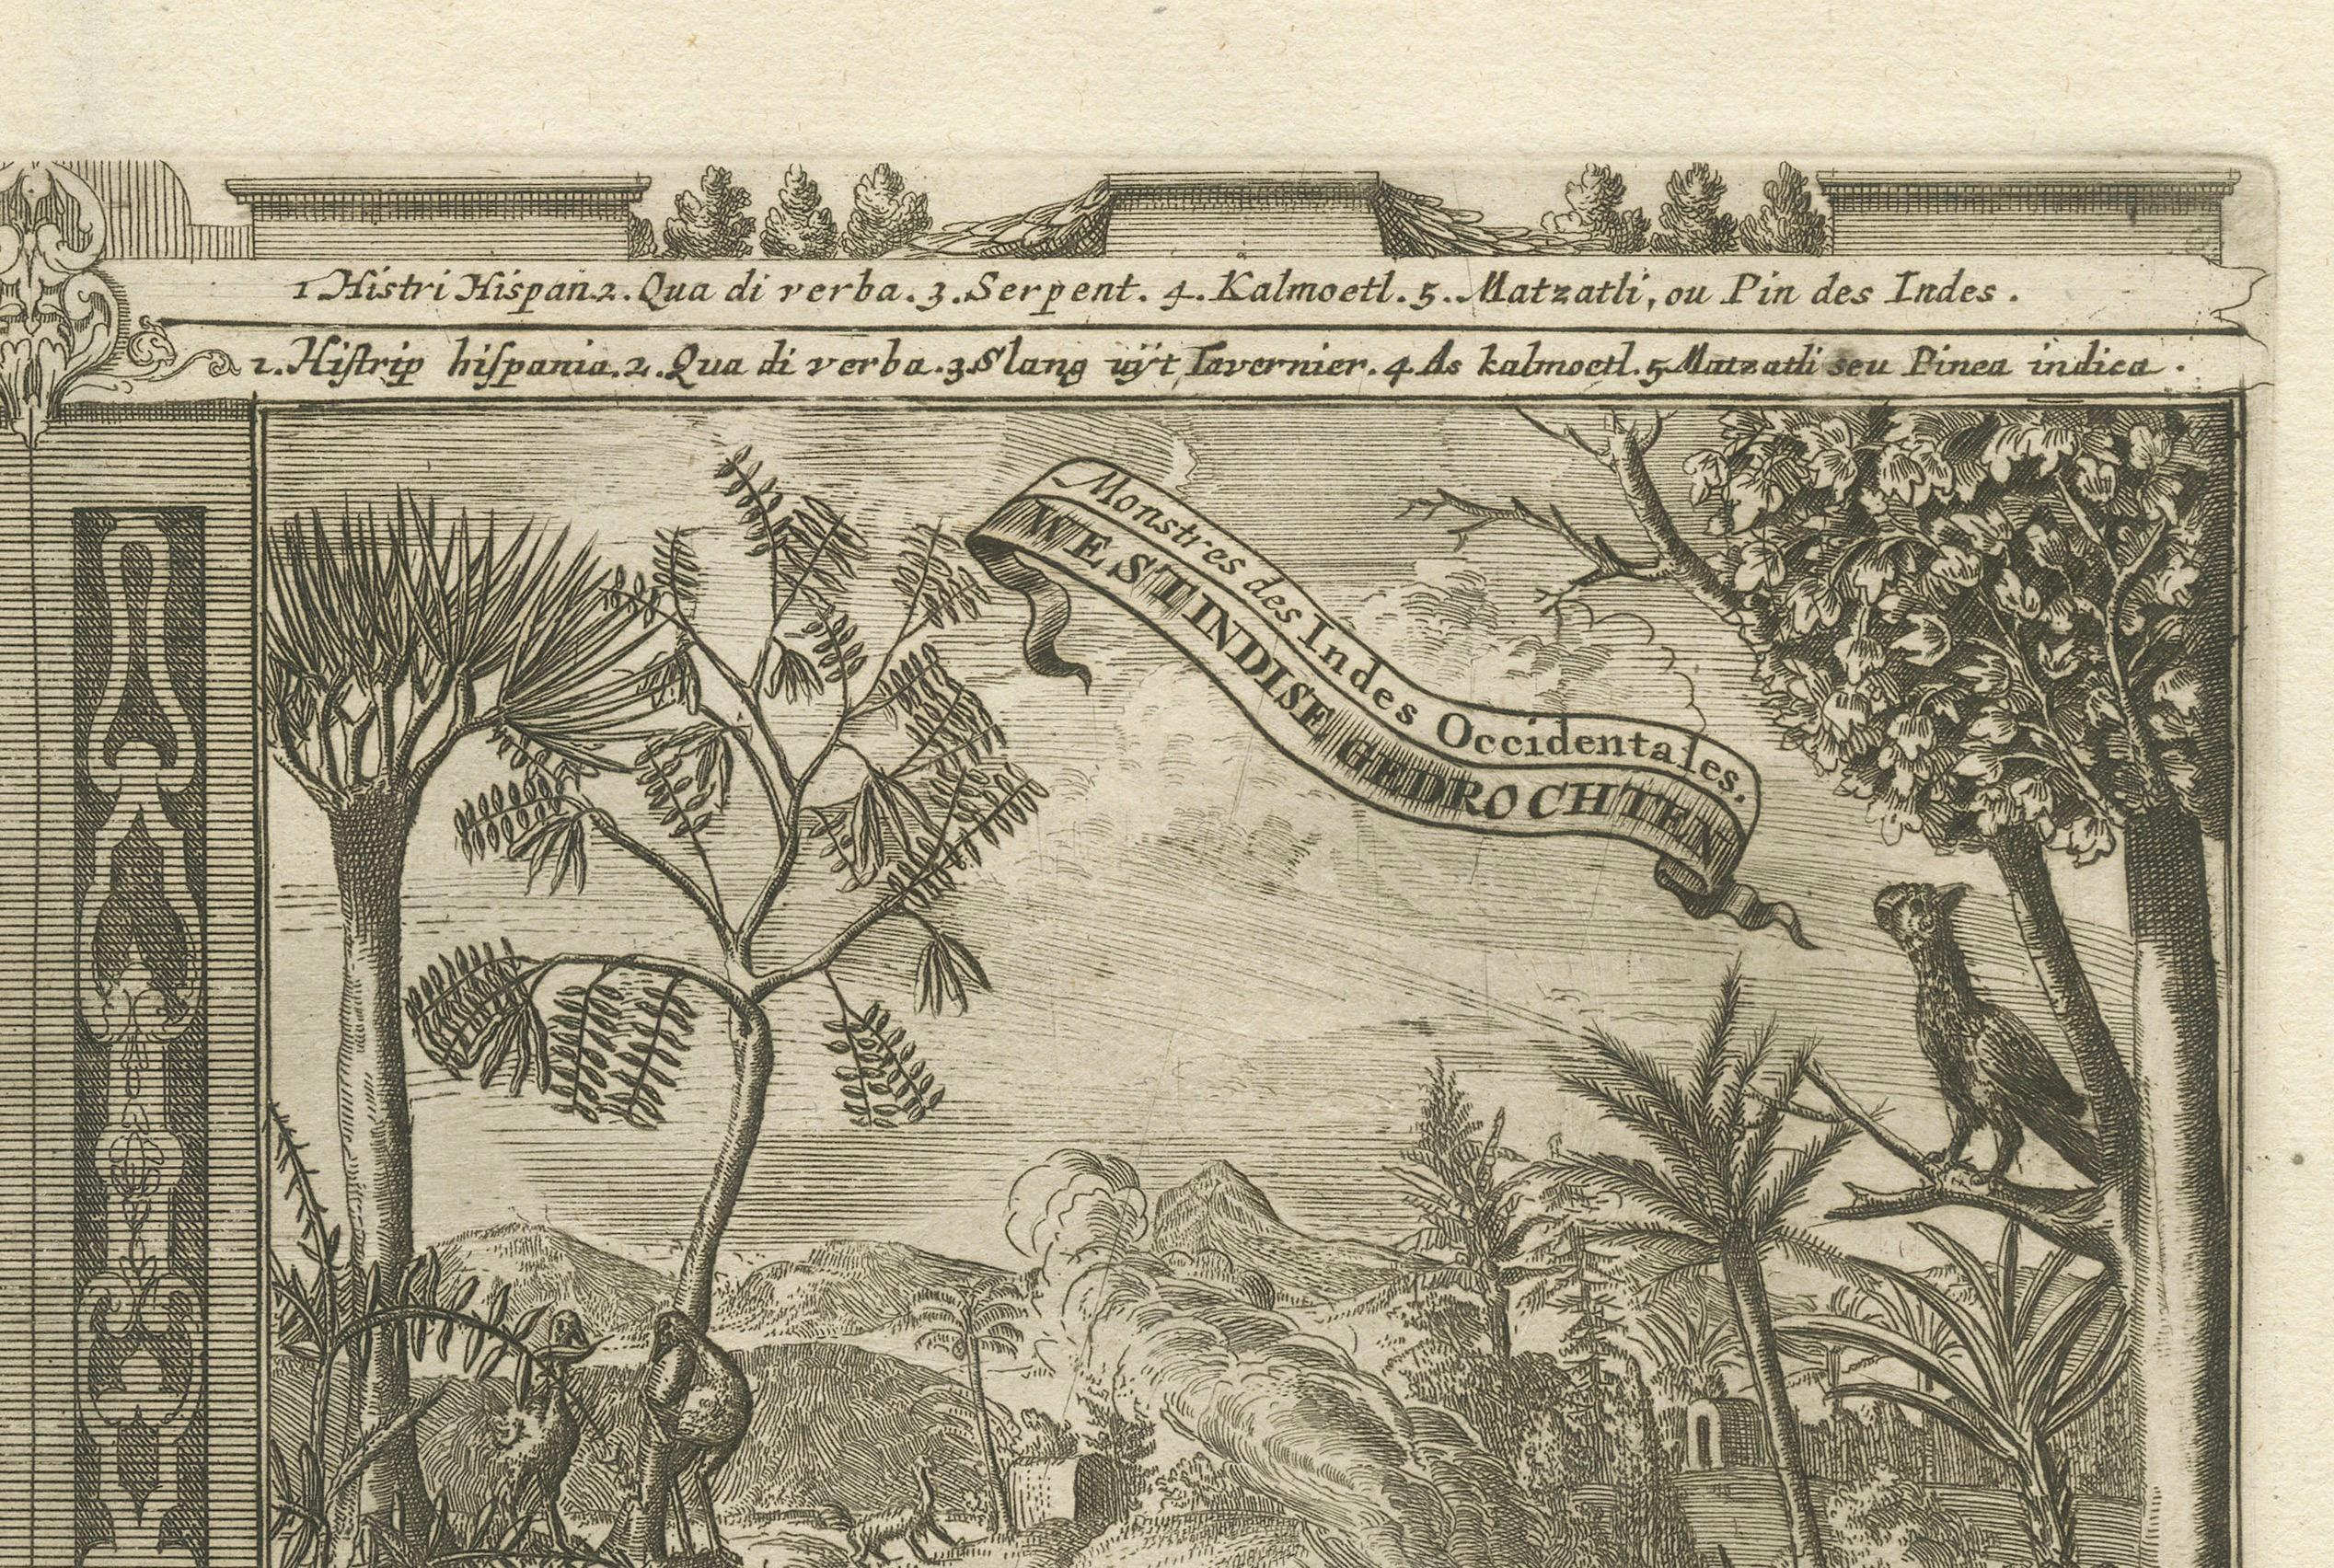 1 Histri Hispan. 2. Qua di verba. 3. Serpent. 4. Kalmoetl. 5. Matzatli, ou Pin des Indes.
1. Hiſtrip hiſpania. 2. Qua di verba. 3 Slang uÿt Tavernier. 4 As kalmoetl. 5 Matzatli seu Pinea indica.
Monstres des Indes Occidentales.
WESTINDISE GEDROCHTEN